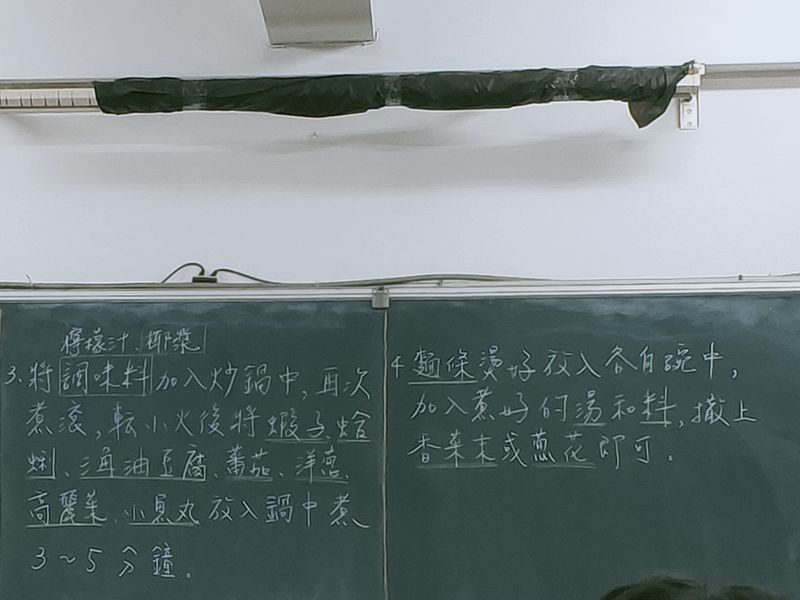 檸檬汁、椰漿
3、將調味料加入炒鍋中,再次
煮滾,転小火後將蝦子、蛤
蜊、三角油豆腐、蕃茄、洋蔥、
高麗菜、小魚丸放入鍋中煮
3~5分鐘。
4、麵條燙好放入各自碗中,
加入煮好的湯和料,撒上
香菜末或蔥花即可。